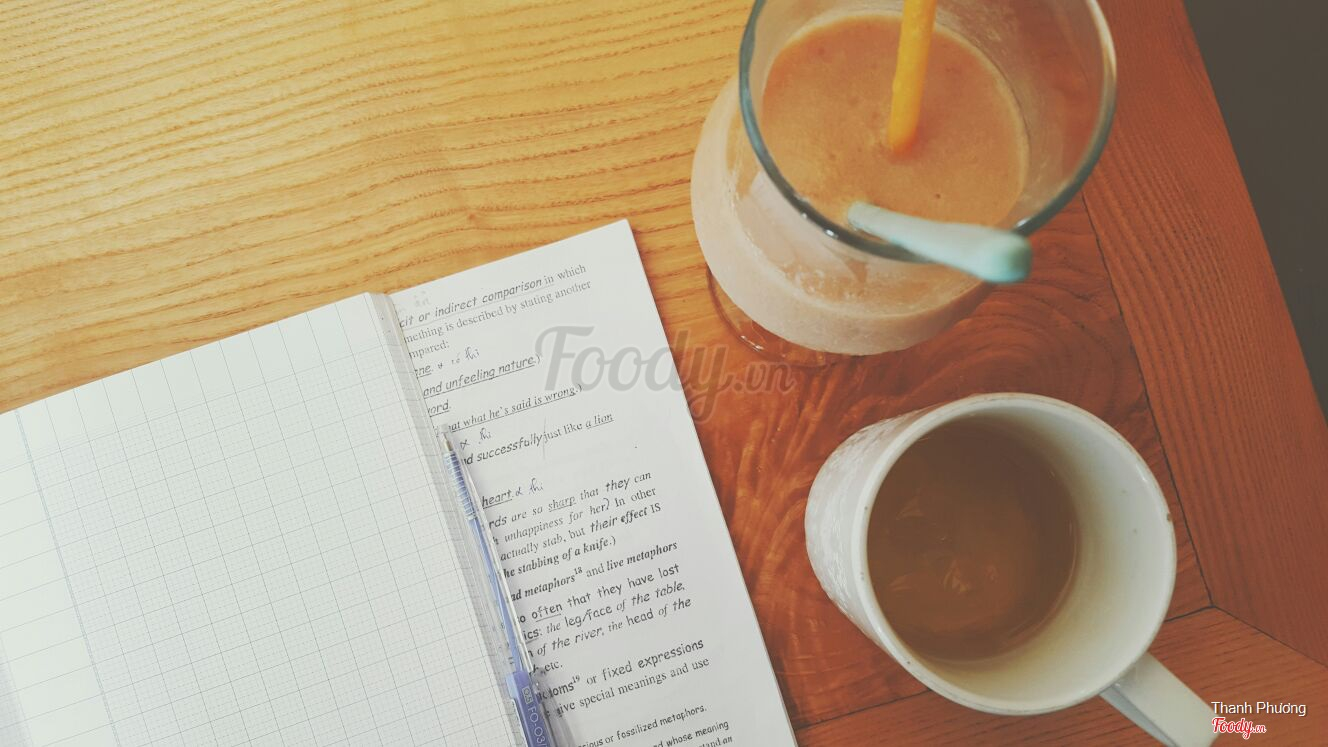 cit or indirect comparison in which
mething is described by stating another
mpared:
and unfeeling nature.)
what he's said is wrong.)
successfully just like a lion
heart.
rds are so sharp that they can
unhappiness for her? In other
actually stab, but their effect IS
he stabbing of a knife.)
ad metaphors18 and live metaphors
o often that they have lost
ics: the leg/face of the table,
of the river, the head of the
etc.
idioms19 or fixed expressions
give special meanings and use
or fossilized metaphors.
and whose meaning
Foody.vn
FO-03
Thanh Phương
Foody.vn